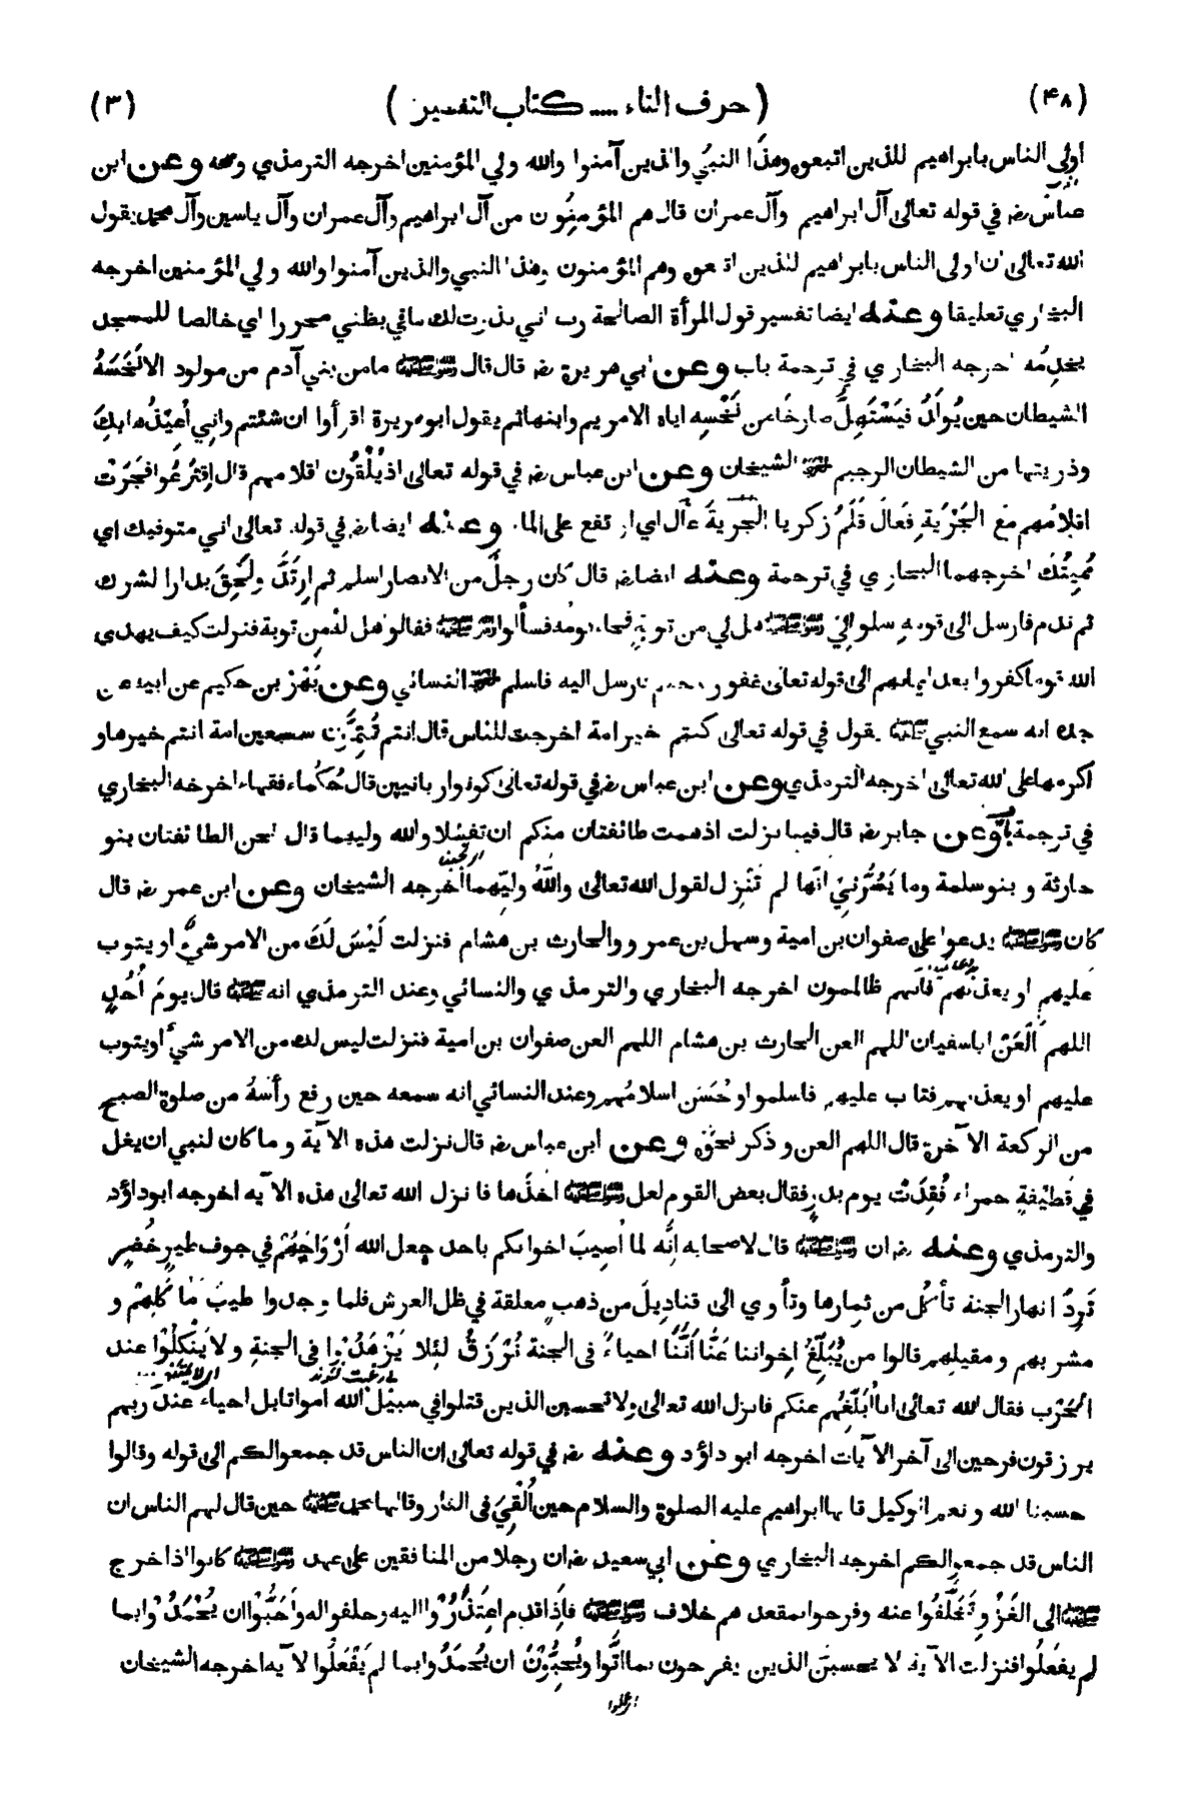 (۴۸) (حرف التاء ..... كتاب التفسير) (۳)
اولى الناس بابراهيم للذين اتبعوه وهذا النبيُّ والذين آمنوا والله ولي المؤمنين اخرجه الترمذي وصححه وعن ابن
عباس رضـ في قوله تعالى آل ابراهيم وآل عمران قال هم المؤمِنُون من آل ابراهيم وآل عمران وآل ياسين وآل محمد يقول
الله تعالى ان اولى الناس بابراهيم للذين اتبعوه وهم المؤمنون وهذا النبي والذين آمنوا والله ولي المؤمنين اخرجه
البخاري تعليقا وعنه ايضا تفسير قول المرأة الصالحة رب اني نذرت لك ما في بطني محررا اي خالصا للمسجد
يخدِمُه اخرجه البخاري في ترجمة باب وعن ابي هريرة رضـ قال قال رسول الله ﷺ ما من بني آدم من مولود الا نَخَسَهُ
الشيطان حين يُولَدُ فيَسْتَهِلُّ صارخًا من نَخْسِه اياه الا مريم وابنها ثم يقول ابو هريرة اقرأوا ان شئتم واني أُعِيْذُها بِكَ
وذريتها من الشيطان الرجيم اخرجه الشيخان وعن ابن عباس رضـ في قوله تعالى اذ يُلْقُون اقلامهم قال اِقْتَرَعُوا فَجَرَتْ
اقلامُهم مَعَ الجَرْيَةِ فَعَالَ قَلَمُ زكريا الجَريةَ عال اي ارتفع على الماء وعنه ايضا رضـ في قوله تعالى اني متوفيك اي
مُمِيْتُكَ اخرجهما البخاري في ترجمة وعنه ايضا رضـ قال كان رجلٌ من الانصار اسلم ثم ارتَدَّ ولَحِقَ بدار الشرك
ثم ندم فارسل الى قومه سلوا لي رسول الله ﷺ هل لي من توبةٍ فجاء قومُه فسألوا رسول الله ﷺ فقالوا هل لهُ من توبة فنزلت كيف يهدي
الله قوما كفروا بعد ايمانهم الى قوله تعالى غفور رحيم فارسل اليه فاسلم اخرجه النسائي وعن بَهْزِ بن حكيم عن ابيه عن
جده انه سمع النبي ﷺ يقول في قوله تعالى كنتم خير امة اخرجت للناس قال انتم تُتِمُّون سبعين امة انتم خيرها و
اكرمها على الله تعالى اخرجه الترمذي وعن ابن عباس رضـ في قوله تعالى كونوا ربانيين قال حُكَماء فقهاء اخرجه البخاري
في ترجمة باب وعن جابر رضـ قال فينا نزلت اذ همت طائفتان منكم ان تفشلا والله وليهما قال نحن الطائفتان بنو
حارثة و بنو سلمة وما يَسُرُّنِيْ انَّها لم تَنْزِل لقول الله تعالى واللهُ وليّهما اخرجه الشيخان وعن ابن عمر رضـ قال
كان رسول الله ﷺ يدعو على صفوان بن امية وسهل بن عمرو والحارث بن هشام فنزلت لَيْسَ لَكَ من الامر شيءٌ او يتوب
عليهم او يعذبهم فانهم ظالمون اخرجه البخاري والترمذي والنسائي وعند الترمذي انه ﷺ قال يومَ أُحُدٍ
اللهم الْعَنْ ابا سفيان اللهم العن الحارث بن هشام اللهم العن صفوان بن امية فنزلت ليس لك من الامر شيءٌ او يتوب
عليهم او يعذبهم فتاب عليهم فاسلموا وحَسُنَ اسلامُهم وعند النسائي انه سمعه حين رفع رأسَهُ من صلوة الصبح
من الركعة الآخرة قال اللهم العن وذكر نحوَه وعن ابن عباس رضـ قال نزلت هذه الآية وما كان لنبي ان يغل
في قَطِيْفةٍ حمراء فُقِدَتْ يوم بدرٍ فقال بعض القوم لعل رسول الله ﷺ اخذَها فانزل الله تعالى هذه الآيه اخرجه ابو داؤد
والترمذي وعنه رضـ ان رسول الله ﷺ قال لاصحابه اِنَّه لما أُصِيبَ اخوانكم باحد جعل الله اَرْوَاحَهُمْ في جوف طيرٍ خُضْرٍ
تَرِدُ انهار الجنة تأكُل من ثمارها وتأوي الى قناديلَ من ذهبٍ معلقة في ظل العرش فلما وجدوا طيبَ مَأْكَلِهِمْ و
مشربهم ومقيلهم قالوا من يُبَلِّغُ اِخواننا عَنَّا اَنَّنَا احياءٌ فى الجنة نُرْزَقُ لئِلا يَزْهَدُوْا فى الجنةِ ولا يَنْكُلُوْا عند
الحَرْب فقال الله تعالى انا اُبَلِّغُهم عنكم فانزل الله تعالى ولا تحسبن الذين قتلوا في سبيل الله امواتا بل احياءٌ عند ربهم
يرزقون فرحين الى آخر الآيات اخرجه ابو داؤد وعنه رضـ في قوله تعالى ان الناس قد جمعوا لكم الى قوله وقالوا
حسبنا الله ونعم الوكيل قالها ابراهيم عليه الصلوة والسلام حين اُلْقِيَ فى النار وقالها محمد ﷺ حين قال لهم الناس ان
الناس قد جمعوا لكم اخرجه البخاري وعن ابي سعيد رضـ ان رجلا من المنافقين على عهد رسول الله ﷺ كانوا اذا خرج
ﷺ الى الغَزْوِ تَخَلَّفُوا عنه وفرحوا بمقعدهم خلاف رسول الله ﷺ فاِذا قدم اعتَذَرُوْا اليه وحلفوا له واَحَبُّوْا ان يُحْمَدُوْا بما
لم يفعَلُوا فنزلت الآية لا يحسبَنّ الذين يفرحون بما اتَوا ويُحِبُّوْنَ ان يُحْمَدُوا بما لم يَفْعَلُوا الآيه اخرجه الشيخان